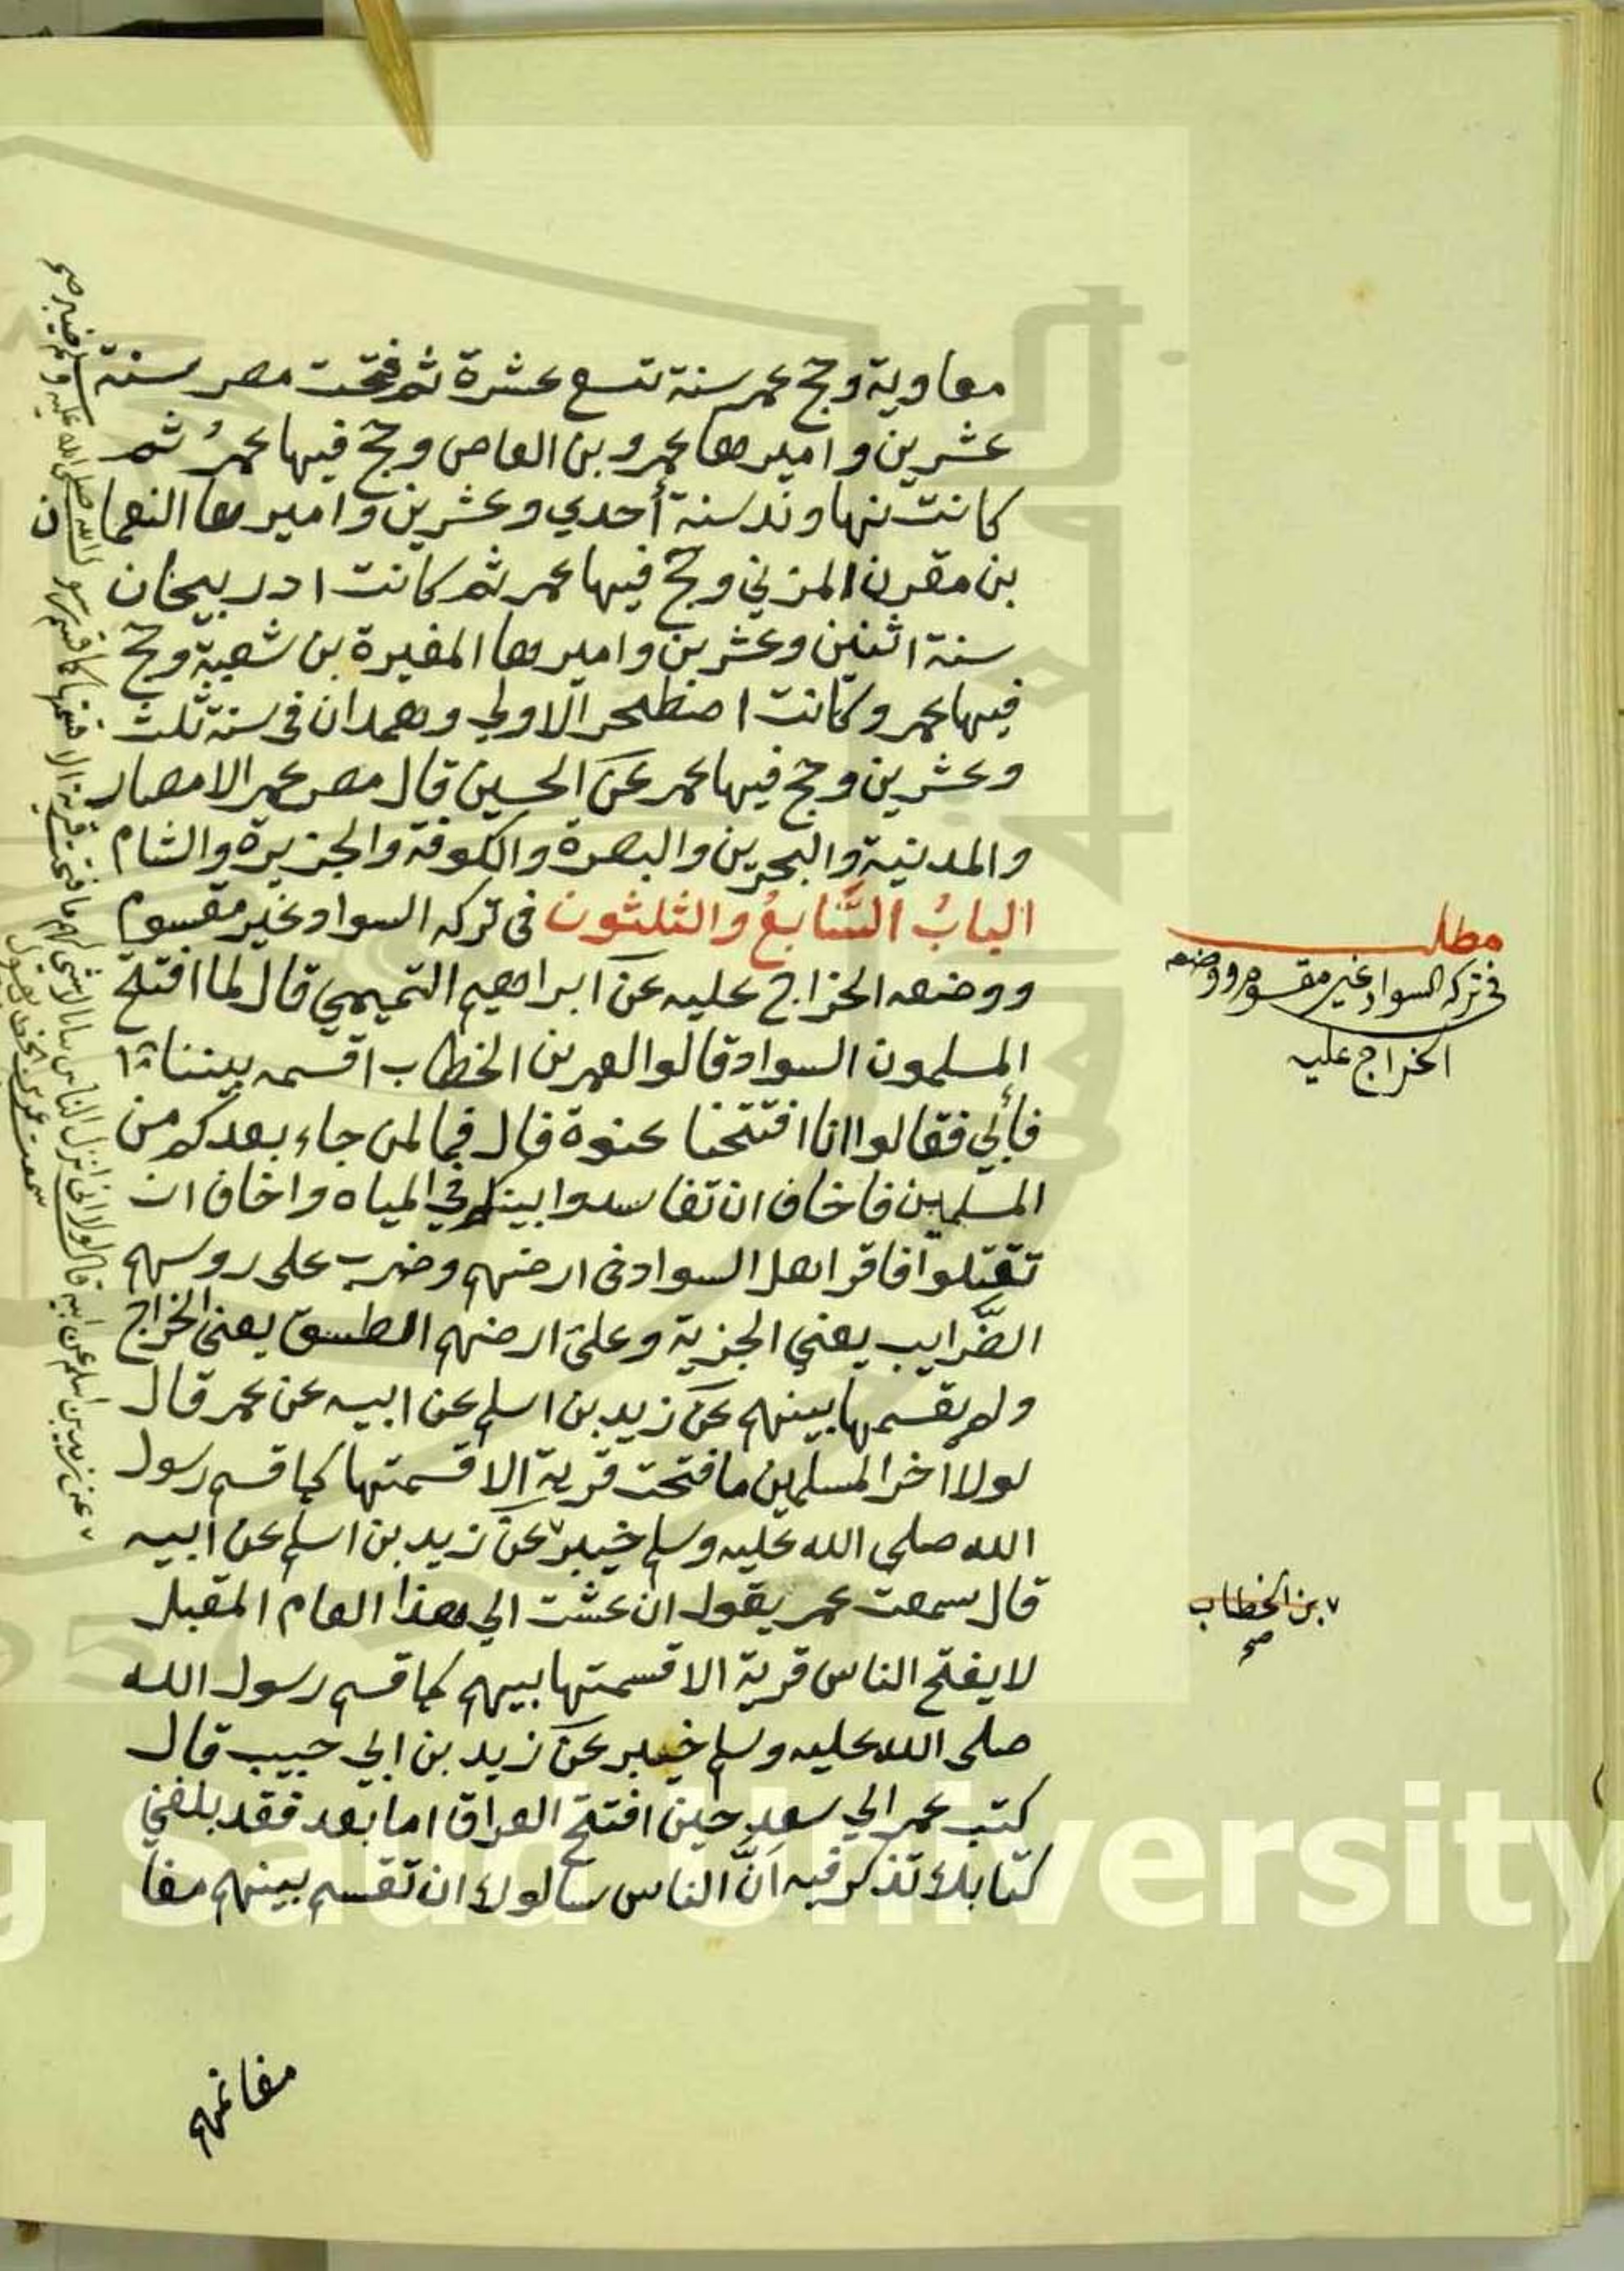 معاوية وحج عمر سنة تسع عشرة ثم فتحت مصر سنة
عشرين واميرها عمرو بن العاص وحج فيها عمرُ ثم
كانت نهاوند سنة أحدي وعشرين واميرها النعمان
بن مقرن المزني وحج فيها عمر ثم كانت ادربيجان
سنة اثنين وعشرين واميرها المغيرة بن شعبة وحج
فيها عمر وكانت اصطخر الاولي وهمدان في سنة ثلث
وعشرين وحج فيها عمر عن الحسين قال مصر عمر الامصار
والمدنية والبحرين والبصرة والكوفة والجزيرة والشام
الباب السَّابعُ والثلثون في تركه السواد غير مقسوم
ووضعه الخراج عليه عن ابراهيم التميمي قال لما افتتح
المسلمون السواد قالوا لعمر بن الخطاب اقسمه بيننا
فأبي فقالوا انا افتتحنا عنوة قال فما لمن جاء بعدكم من
المسلمين فاخاف ان تفاسدوا بينكم في المياه واخاف ان
تقتلوا فاقر اهل السواد في ارضهم وضرب على روسهم
الضَّرايب يعني الجزية وعلى ارضهم الطسق يعني الخراج
ولم يقسمها بينهم عن زيد بن اسلم عن ابيه عن عمر قال
لولا اخر المسلمين ما فتحت قرية الا قسمتها كما قسم رسول
الله صلى الله عليه وسلم خيبر ٧ عن زيد بن اسلم عن ابيه
قال سمعت عمر يقول ان عشت الي هذا العام المقبل
لا يفتح الناس قرية الا قسمتها بيهم كما قسم رسول الله
صلى الله عليه وسلم خيبر عن زيد بن ابي حبيب قال
كتب عمر الي سعد حين افتتح العراق اما بعد فقد بلغني
كتابك تذكر فيه انَّ الناس سالوك ان تقسم بينهم مغا
مغانمهم
مطلب
في تركه السواد غير مقسوم ووضعه
الخراج عليه
٧ بن الخطاب
صح
٧ عن زيد بن اسلم عن ابيه قال لولا اني اترك الناس ببانا لا شي لهم ما فتحت قرية الا قسمتها كما قسم رسول الله صلى الله عليه وسلم خيبر صح
سمعت عمر بن الخطاب يقول